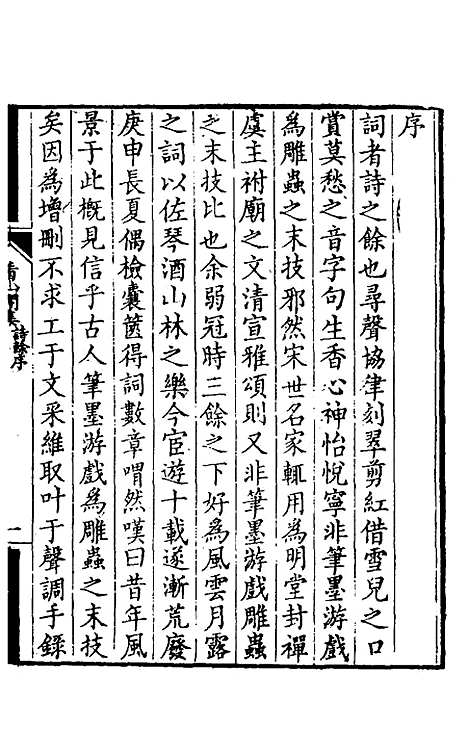 序
詞者詩之餘也尋聲協律刻翠剪紅借雪兒之口
賞莫愁之音字句生香心神怡悅寧非筆墨游戲
為雕蟲之末技邪然宋世名家輒用為明堂封禪
虞主祔廟之文清宣雅頌則又非筆墨游戲雕蟲
之末技比也余弱冠時三餘之下好為風雲月露
之詞以佐琴酒山林之樂今宦遊十載遂漸荒廢
庚申長夏偶檢囊篋得詞數章喟然嘆曰昔年風
景于此概見信乎古人筆墨游戲為雕蟲之末技
矣因為增刪不求工于文采維取叶于聲調手錄
詩餘序
一